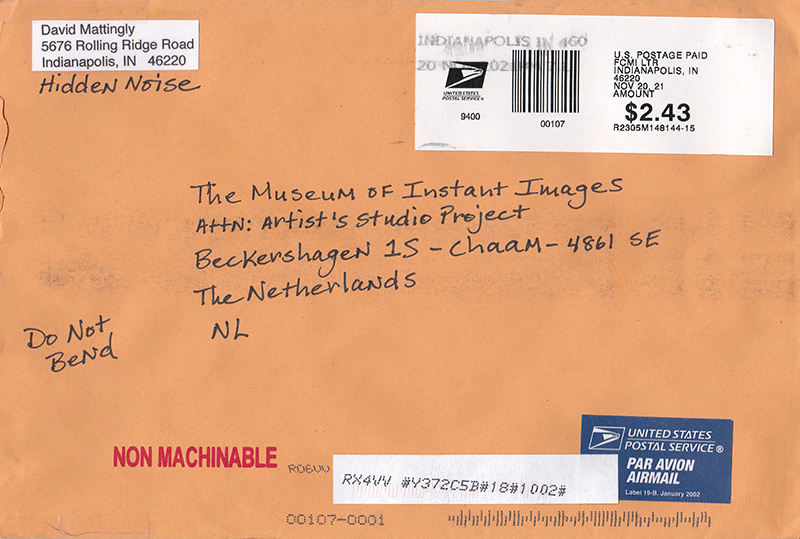 David Mattingly
5676 Rolling Ridge Road
Indianapolis, IN 46220
Hidden Noise
INDIANAPOLIS IN 460
UNITED STATES
POSTAL SERVICE®
9400
00107
U.S. POSTAGE PAID
FCMI LTR
INDIANAPOLIS, IN
46220
NOV 20, 21
AMOUNT
$2.43
R2305M148144-15
The Museum of Instant Images
Attn: Artist's Studio Project
Beckershagen 15 - Chaam - 4861 SE
The Netherlands
NL
Do Not
Bend
NON MACHINABLE
RO6VV
RX4VV #Y372C5B#18#1002#
00107-0001
UNITED STATES
POSTAL SERVICE®
PAR AVION
AIRMAIL
Label 19-B, January 2002